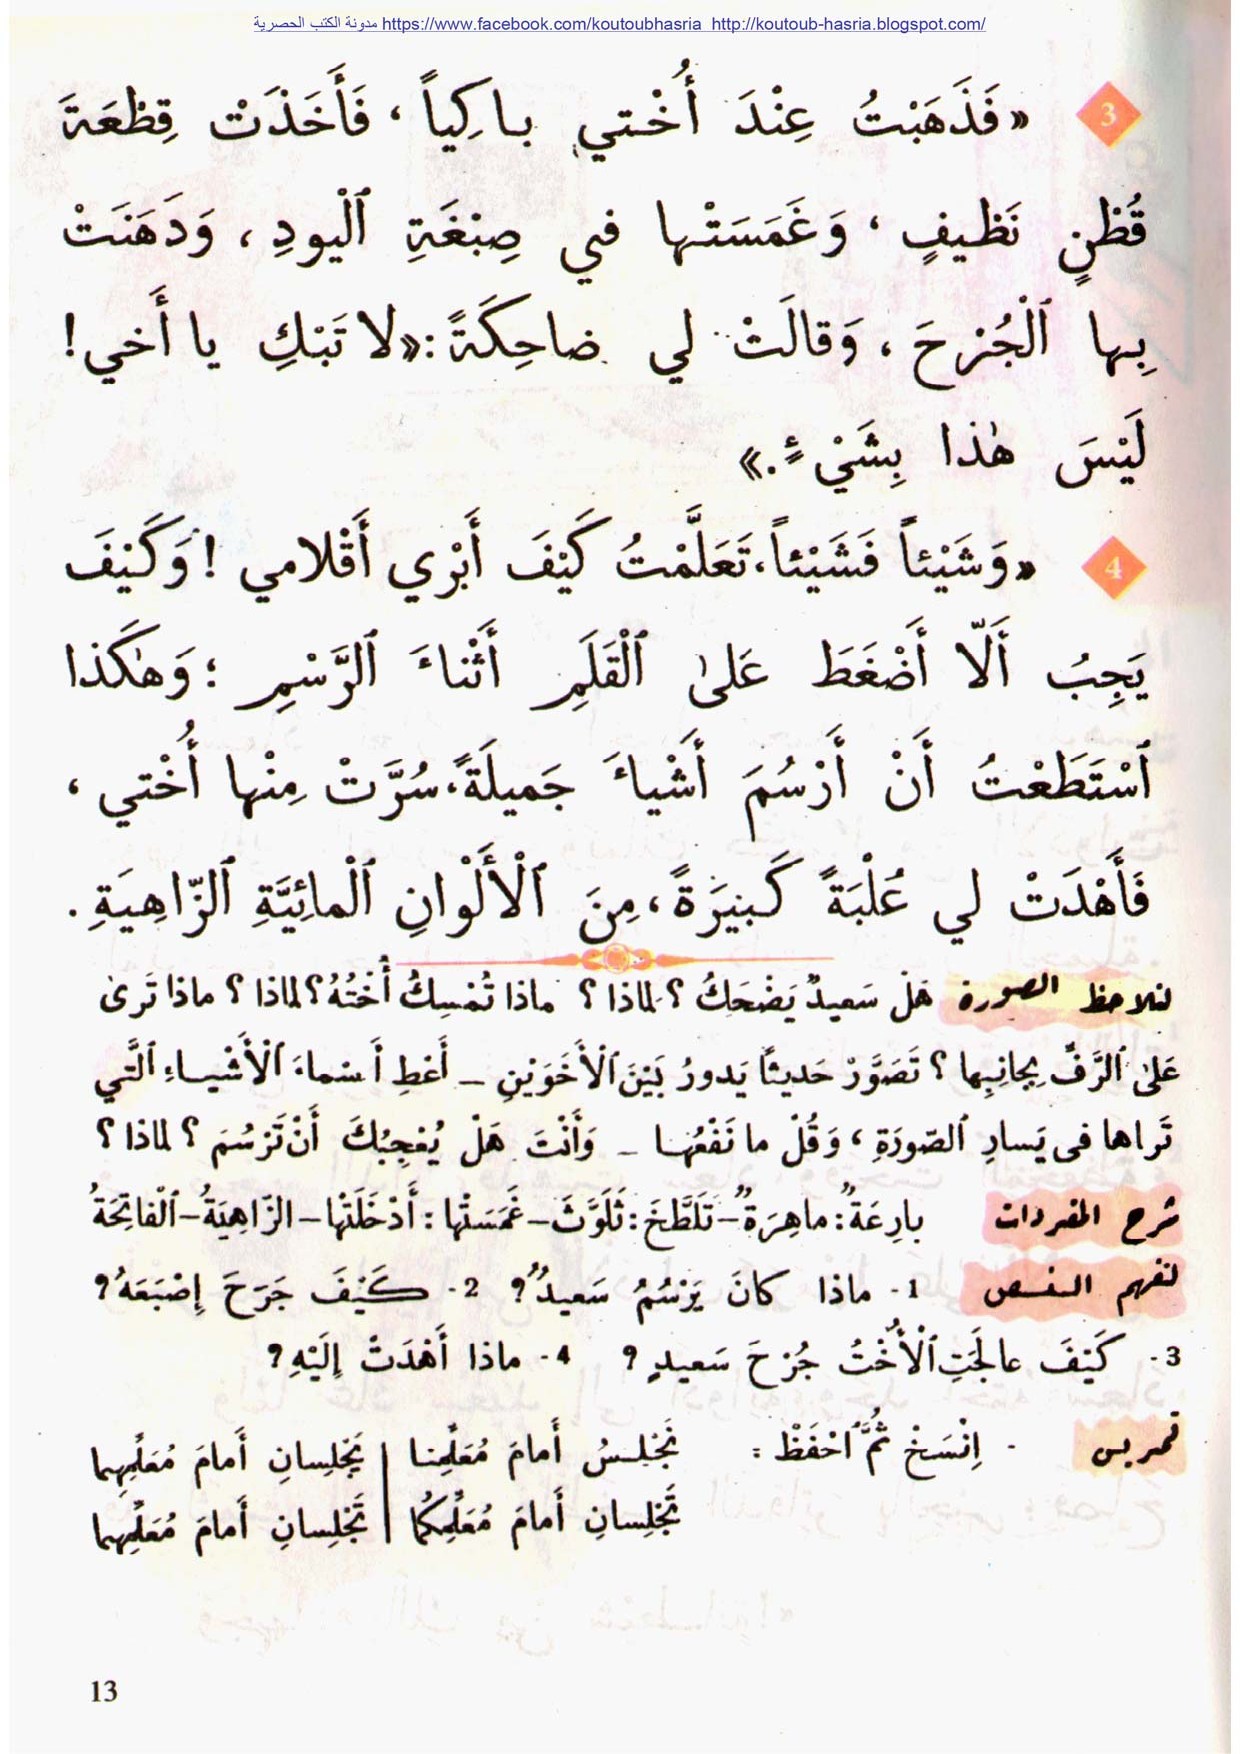 مدونة الكتب الحصرية https://www.facebook.com/koutoubhasria http://koutoub-hasria.blogspot.com/
3 «فَذَهَبْتُ عِنْدَ أُخْتي باكِياً، فَأَخَذَتْ قِطْعَةَ
قُطْنٍ نَظيفٍ، وَغَمَسَتْها في صِبْغَةِ ٱلْيودِ، وَدَهَنَتْ
بِها ٱلْجُرْحَ، وَقالَتْ لي ضاحِكَةً:«لا تَبْكِ يا أَخي!
لَيْسَ هٰذا بِشَيْءٍ.»
4 «وَشَيْئاً فَشَيْئاً، تَعَلَّمْتُ كَيْفَ أَبْري أَقْلامي! وَكَيْفَ
يَجِبُ أَلّا أَضْغَطَ عَلىٰ ٱلْقَلَمِ أَثْناءَ ٱلرَّسْمِ؛ وَهٰكَذا
ٱسْتَطَعْتُ أَنْ أَرْسُمَ أَشْياءَ جَميلَةً، سُرَّتْ مِنْها أُخْتي،
فَأَهْدَتْ لي عُلْبَةً كَبيرَةً، مِنَ ٱلْأَلْوانِ ٱلْمائِيَّةِ ٱلزّاهِيَةِ.
لنلاحظ الصورة هَلْ سَعيدٌ يَضْحَكُ؟ لماذا؟ ماذا تُمْسِكُ أُخْتُهُ؟ لماذا؟ ماذا تَرىٰ
عَلىٰ ٱلرَّفِّ بِجانِبِها؟ تَصَوَّرْ حَديثاً يَدورُ بَيْنَ ٱلْأَخَوَيْنِ - أَعْطِ أَسْماءَ ٱلْأَشْياءِ ٱلَّتي
تَراها في يَسارِ ٱلصّورَةِ، وَقُلْ ما نَفْعُها - وَأَنْتَ هَلْ يُعْجِبُكَ أَنْ تَرْسُمَ؟ لماذا؟
شرح المفردات بارِعَةٌ: ماهِرَةٌ - تَلَطَّخَ: تَلَوَّثَ - غَمَسَتْها: أَدْخَلَتْها - الزّاهِيَةُ - ٱلْفاتِحَةُ
لنفهم النص 1 - ماذا كانَ يَرْسُمُ سَعيدٌ؟ 2 - كَيْفَ جَرَحَ إِصْبَعَهُ؟
3 - كَيْفَ عالَجَتِ ٱلْأُخْتُ جُرْحَ سَعيدٍ؟ 4 - ماذا أَهْدَتْ إِلَيْهِ؟
تمرين - اِنْسَخْ ثُمَّ ٱحْفَظْ: نَجْلِسُ أَمامَ مُعَلِّمِنا | يَجْلِسانِ أَمامَ مُعَلِّمِهِما
تَجْلِسانِ أَمامَ مُعَلِّمِكُما | تَجْلِسانِ أَمامَ مُعَلِّمِهِما
13